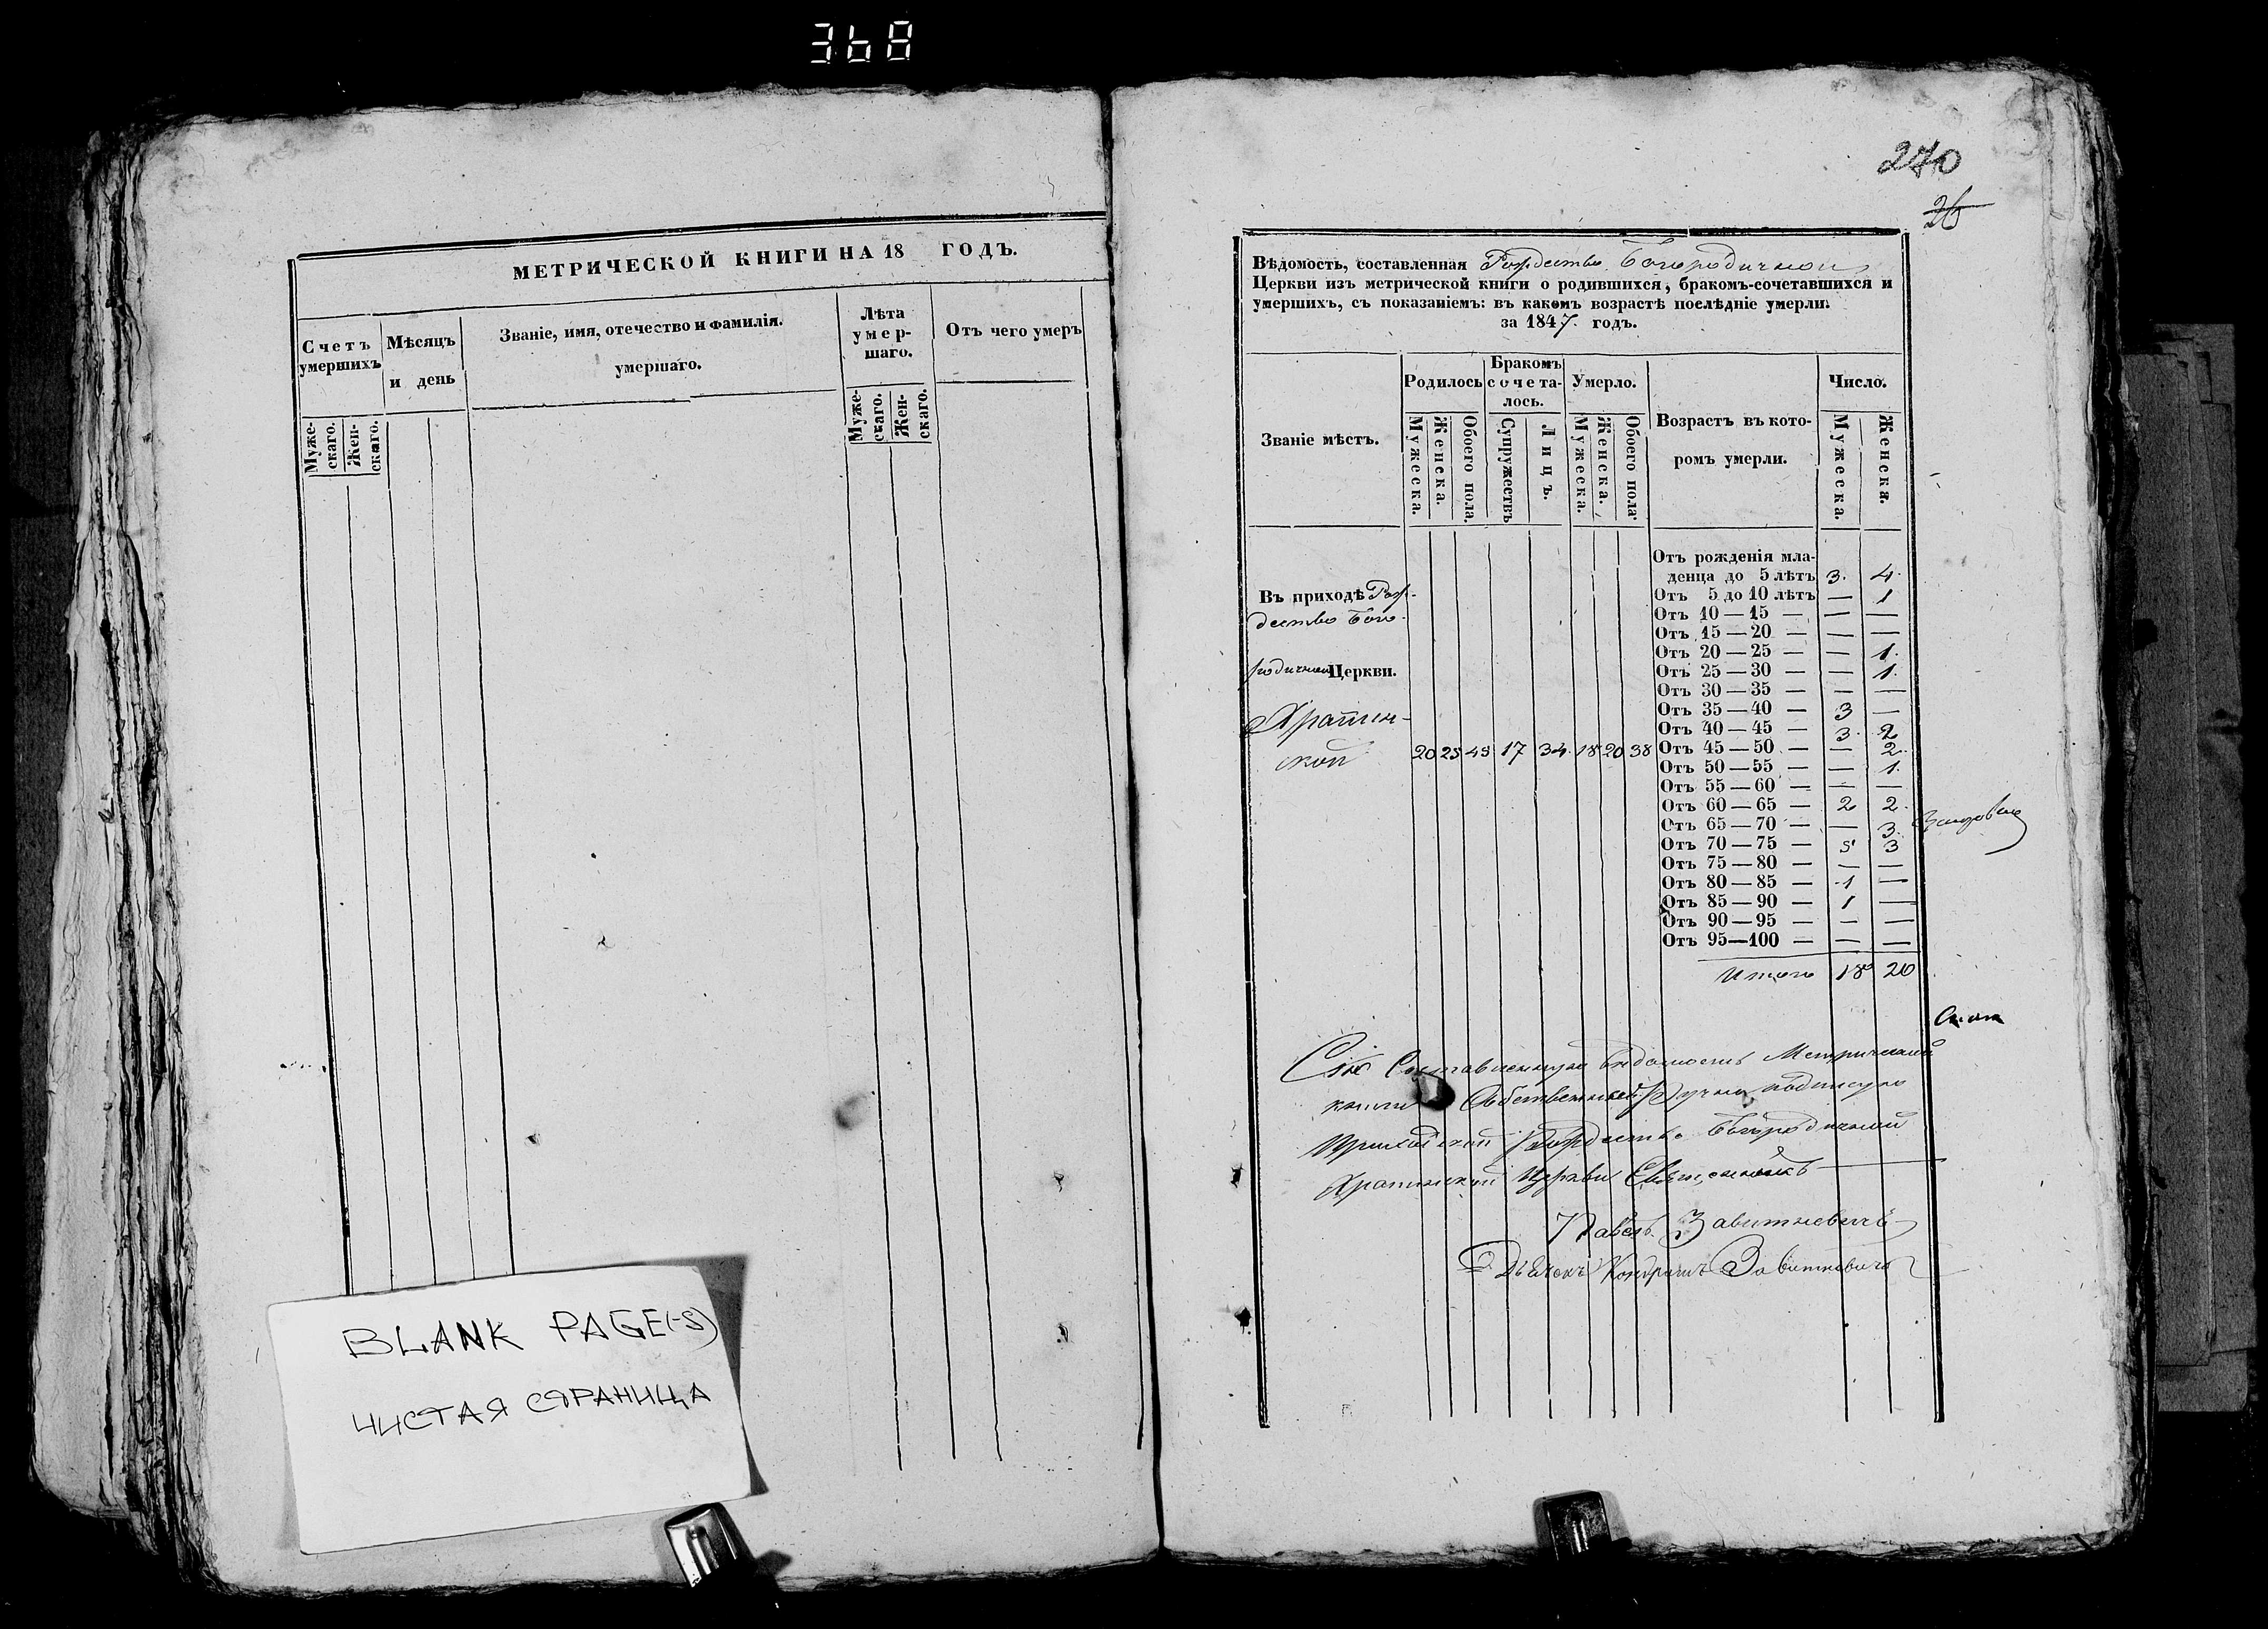 368
МЕТРИЧЕСКОЙ КНИГИ НА 18 ГОДЪ.
Счетъ умершихъ
Мѣсяцъ и день
Званіе, имя, отечество и фамилія.
умершаго.
Лѣта умер-
шаго.
Отъ чего умеръ
Муже-
скаго.
Жен-
скаго.
Муже-
скаго.
Жен-
скаго.
BLANK PAGE(-S)
ЧИСТАЯ СТРАНИЦА
270
26
Вѣдомость, составленная Рождество Богородичной
Церкви изъ метрической книги о родившихся, бракомъ-сочетавшихся и
умершихъ, съ показаніемъ: въ какомъ возрастѣ послѣдніе умерли.
за 1847. годъ.
Званіе мѣстъ.
Родилось
Бракомъ
сочета-
лось.
Умерло.
Возрастъ въ кото-
ромъ умерли.
Число.
Мужеска. Женска. Обоего пола. Супружествъ Лицъ. Мужеска. Женска. Обоего пола. Мужеска. Женска.
Въ приходѣ Рож-
дество Бого-
родичной Церкви.
Храпин-
ской 20 25 45 17 34 18 20 38
Отъ рожденія мла-
денца до 5 лѣтъ 3. 4.
Отъ 5 до 10 лѣтъ — 1
Отъ 10 — 15 — — —
Отъ 15 — 20 — — —
Отъ 20 — 25 — — 1.
Отъ 25 — 30 — — 1.
Отъ 30 — 35 — — —
Отъ 35 — 40 — 3 —
Отъ 40 — 45 — 3. 2
Отъ 45 — 50 — — 2.
Отъ 50 — 55 — — 1.
Отъ 55 — 60 — — —
Отъ 60 — 65 — 2 2.
Отъ 65 — 70 — — 3.
Отъ 70 — 75 — 5 3
Отъ 75 — 80 — — —
Отъ 80 — 85 — 1 —
Отъ 85 — 90 — 1 —
Отъ 90 — 95 — — —
Отъ 95—100 — — —
Итого 18 20
Сію Составленную вѣдомость Метрической
книги Собственноручно подписую
Приходской Рождество Богородичной
Храпинской Церкви Священникъ
Павелъ Завитневичъ
Дьячокъ Кондратъ Завитневичъ